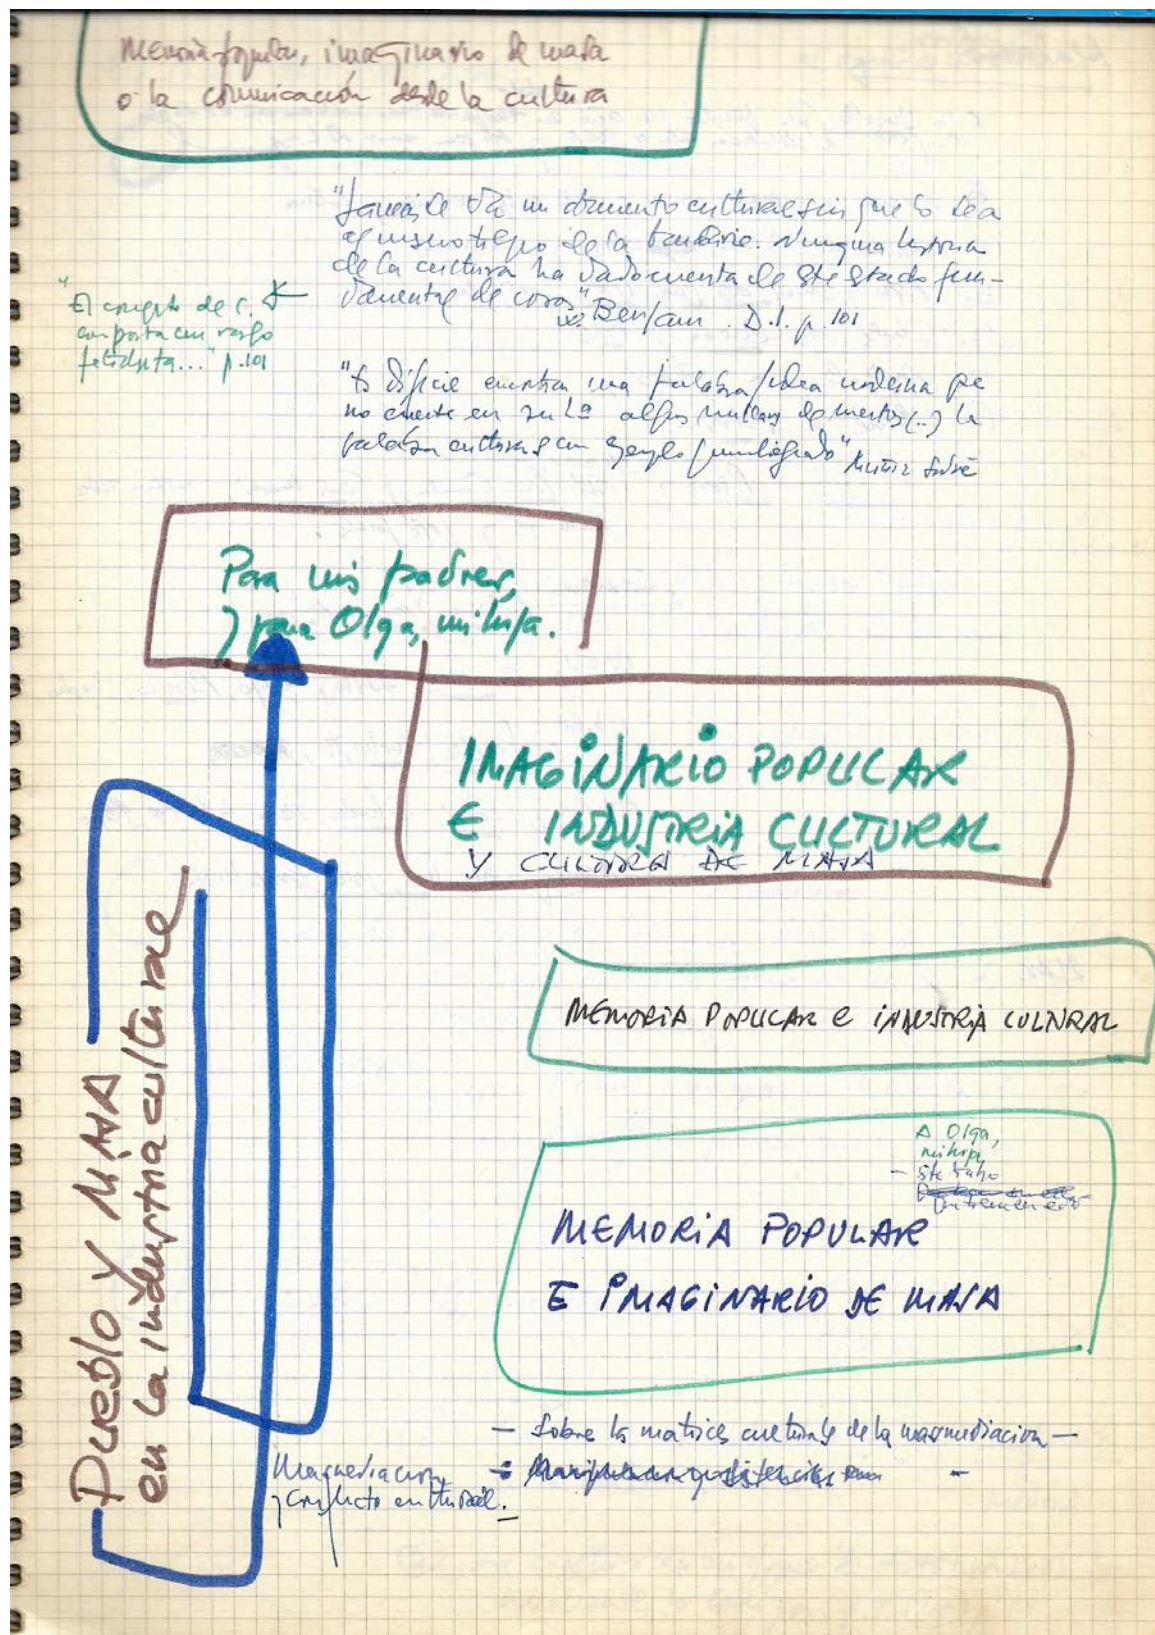 Memoria popular, imaginario de masa
o la comunicación desde la cultura
"Jamás se da un documento cultural sin que lo sea
al mismo tiempo de la barbarie. Ninguna historia
de la cultura ha dado cuenta de este estado fun-
damental de cosas" Benjamin. D.I. p. 101
"El concepto de c.
comporta un rasgo
fetichista..." p. 101
"Es difícil encontrar una palabra/idea moderna que
no cuente en su h.ª algún millar de muertos (..) la
palabra cultura es un ejemplo privilegiado" Muñiz Sodré
Para mis padres,
y para Olga, mi hija.
IMAGINARIO POPULAR
E INDUSTRIA CULTURAL
Y CULTURA DE MASA
MEMORIA POPULAR e INDUSTRIA CULTURAL
A Olga,
mi hija,
MEMORIA POPULAR
E IMAGINARIO DE MASA
Pueblo y MASA
en la industria cultural
— Sobre las matrices culturales de la massmediacion —
Massmediacion
y conflicto cultural.